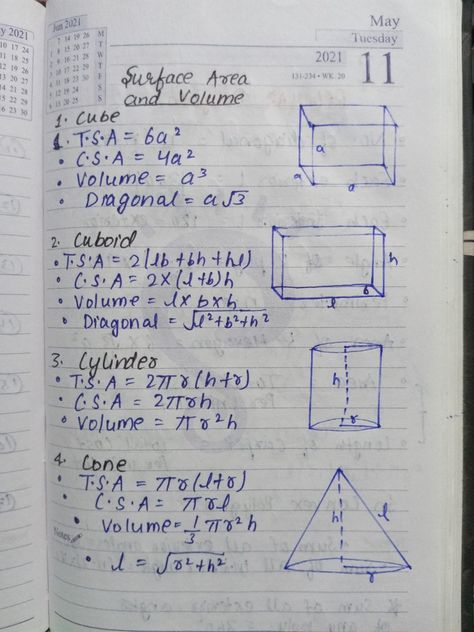 y 2021
Jun 2021
M
T
W
T
F
S
S
7 14 21 28
May
Tuesday
2021
131-234 • WK 20
11
Surface Area
and Volume
1. Cube
1. T.S.A = 6a²
• C.S.A = 4a²
• Volume = a³
• Diagonal = a√3
a
a
a
2. Cuboid
• T.S.A = 2(lb + bh + hl)
• C.S.A = 2×(l+b)h
• Volume = l×b×h
• Diagonal = √l²+b²+h²
h
b
l
3. Cylinder
• T.S.A = 2πr(h+r)
• C.S.A = 2πrh
• Volume = πr²h
h
r
4. Cone
• T.S.A = πr(l+r)
• C.S.A = πrl
• Volume = 1/3 πr²h
Notes
• l = √r²+h²
h
l
r